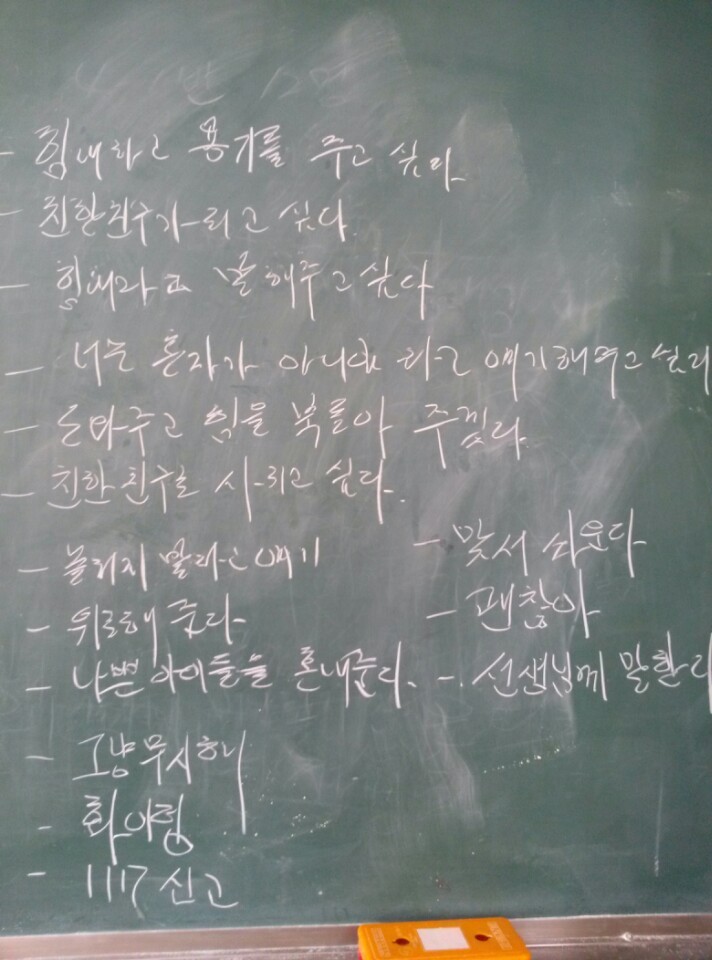 - 힘내라고 용기를 주고 싶다.
- 친한친구가 되고 싶다.
- 힘내라고 말해주고싶다
- 너는 혼자가 아니야 라고 얘기해주고 싶다
- 도와주고 힘을 북돋아 주겠다.
- 친한 친구로 사귀고 싶다.
- 놀리지 말라고 얘기
- 맞서 싸운다
- 위로해 준다
- 괜찮아
- 나쁜 아이들을 혼내준다.
- 선생님께 말한다
- 그냥 무시해
- 화이팅
- 117 신고